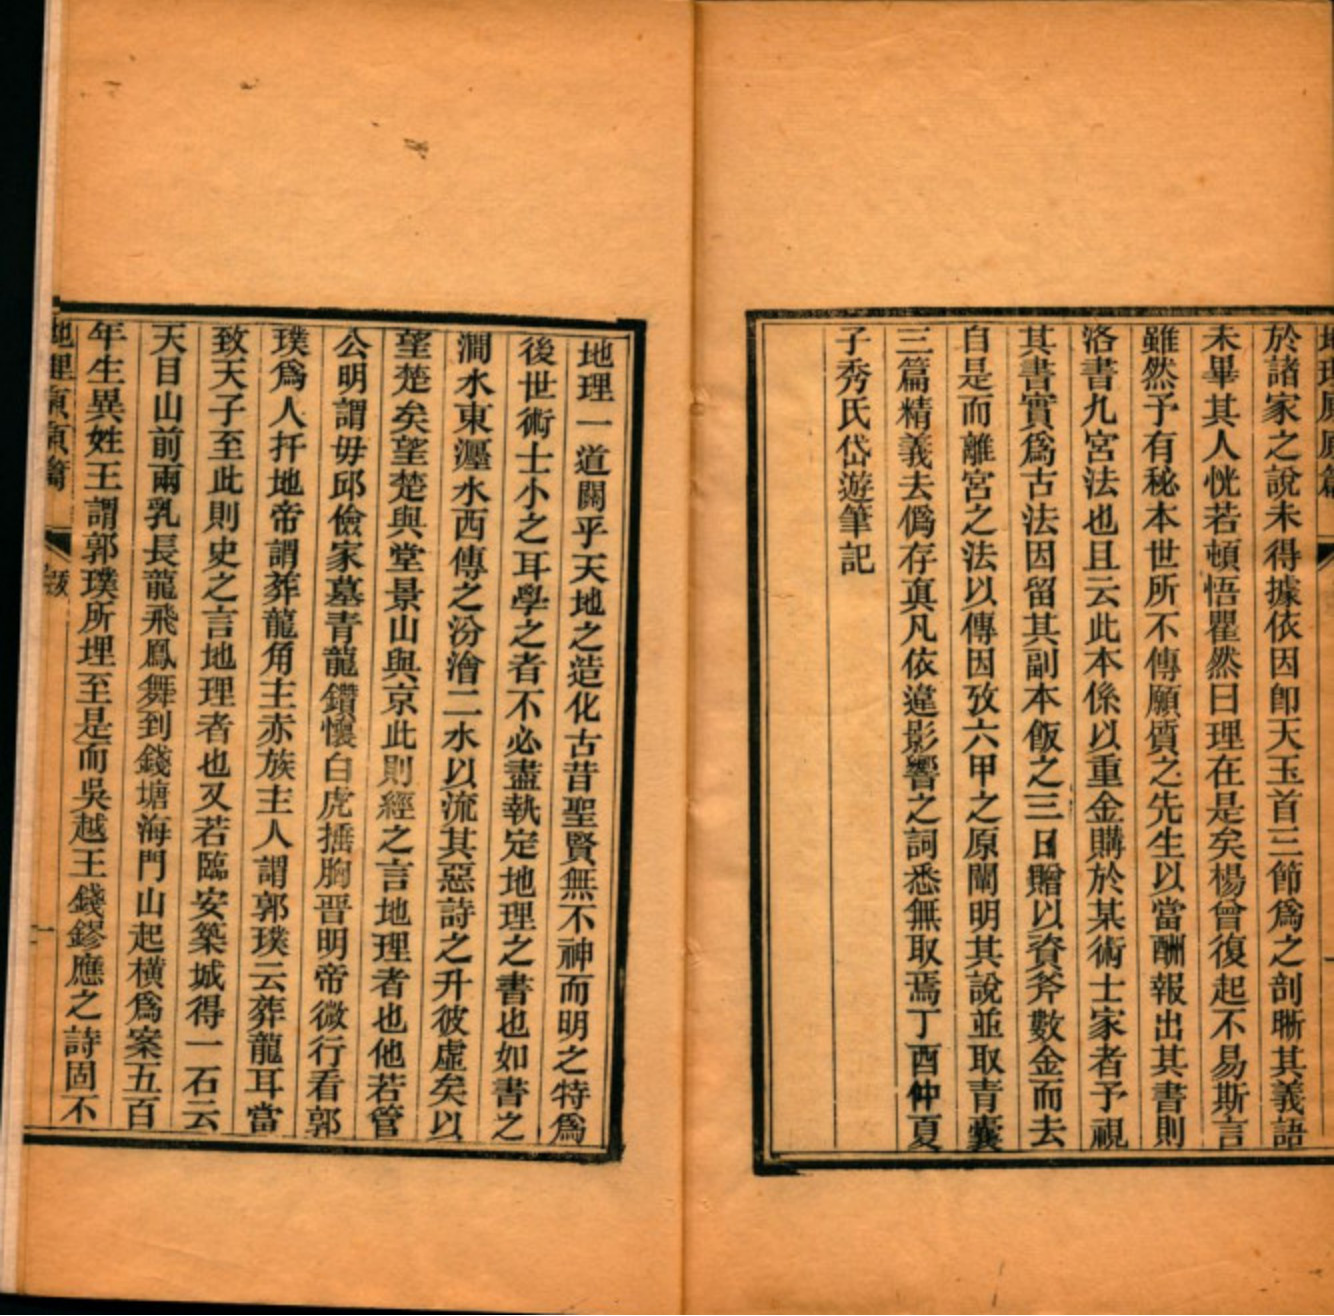 地理原原篇
於諸家之說未得據依因卽天玉首三節爲之剖晰其義語
未畢其人恍若頓悟瞿然曰理在是矣楊曾復起不易斯言
雖然予有秘本世所不傳願質之先生以當酬報出其書則
洛書九宮法也且云此本係以重金購於某術士家者予視
其書實爲古法因留其副本飯之三日贈以資斧數金而去
自是而離宮之法以傳因攷六甲之原闡明其說並取青囊
三篇精義去僞存眞凡依違影響之詞悉無取焉丁酉仲夏
子秀氏岱遊筆記
地理一道關乎天地之造化古昔聖賢無不神而明之特爲
後世術士小之耳學之者不必盡執定地理之書也如書之
澗水東瀍水西傳之汾澮二水以流其惡詩之升彼虛矣以
望楚矣望楚與堂景山與京此則經之言地理者也他若管
公明謂毋邱儉家墓青龍鑽懷白虎搐胸晋明帝微行看郭
璞爲人扦地帝謂葬龍角主赤族主人謂郭璞云葬龍耳當
致天子至此則史之言地理者也又若臨安築城得一石云
天目山前兩乳長龍飛鳳舞到錢塘海門山起橫爲案五百
年生異姓王謂郭璞所埋至是而吳越王錢鏐應之詩固不
地理原原篇